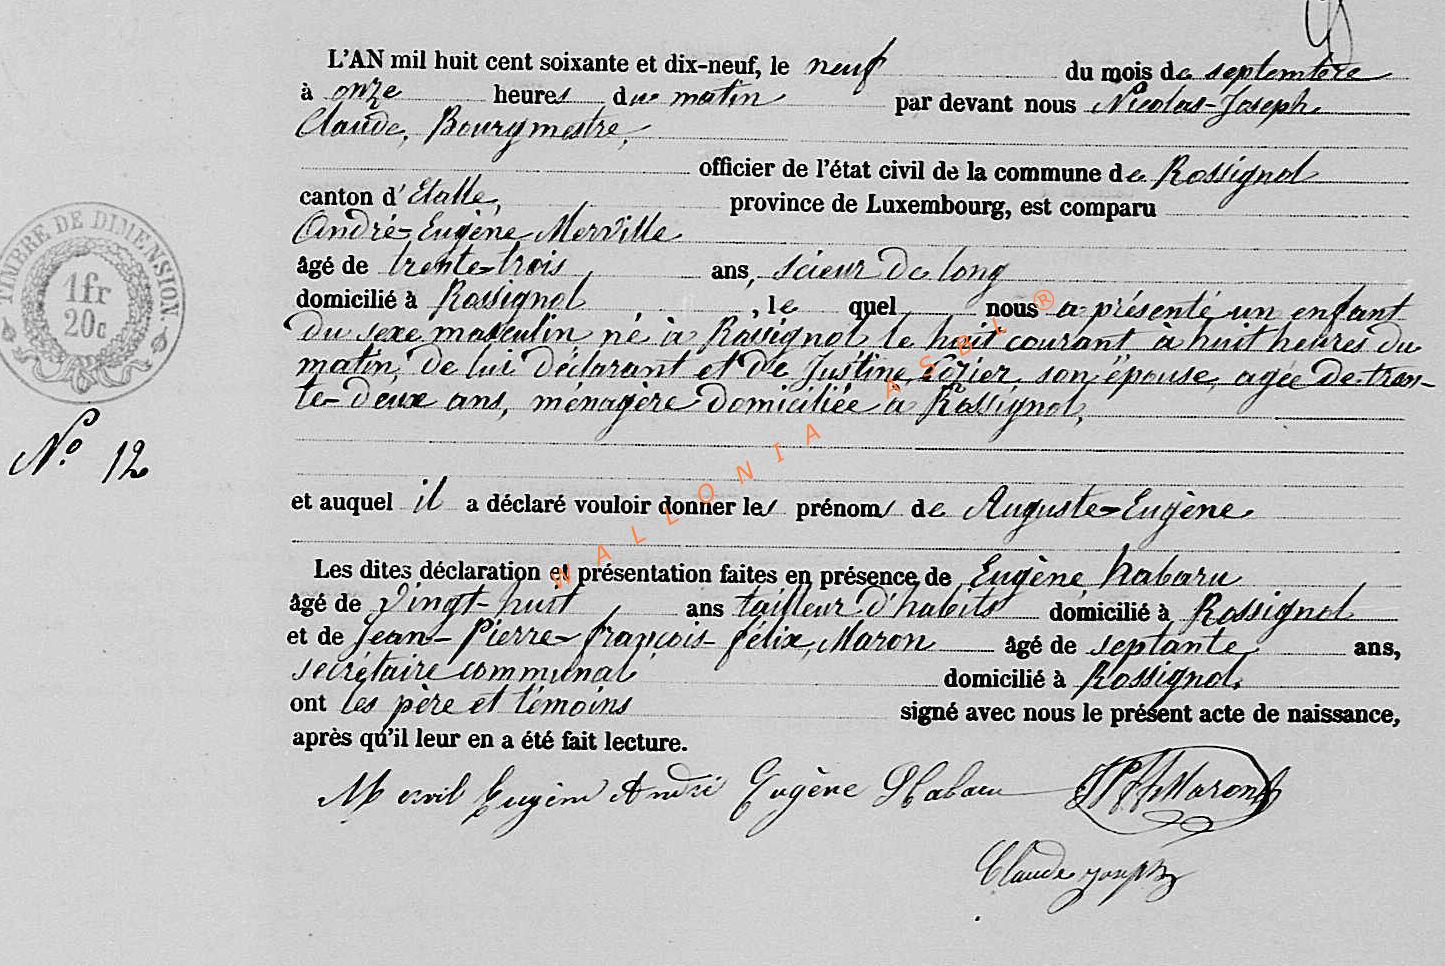 L'AN mil huit cent soixante et dix-neuf, le neuf du mois de septembre
à onze heures du matin par devant nous Nicolas-Joseph
Claude, Bourgmestre,
officier de l'état civil de la commune de Rossignol
canton d'Etalle, province de Luxembourg, est comparu
André-Eugène Merville
âgé de trente-trois ans, scieur de long
domicilié à Rossignol, lequel nous a présenté un enfant
du sexe masculin né à Rossignol le huit courant à huit heures du
matin, de lui déclarant et de Justine son épouse, agée de tren-
te-deux ans, ménagère domiciliée à Rossignol,
et auquel il a déclaré vouloir donner les prénoms de Auguste-Eugène
Les dites déclaration et présentation faites en présence de Eugène habaru
âgé de vingt-huit ans tailleur d'habits domicilié à Rossignol
et de Jean-Pierre-françois-félix, Maron âgé de septante ans,
secrétaire communal domicilié à Rossignol.
ont les père et témoins signé avec nous le présent acte de naissance,
après qu'il leur en a été fait lecture.
Eugène Habaru JPFFMaron
Claude
TIMBRE DE DIMENSION
1fr
20c
N° 12
WALLONIA ASBL ®